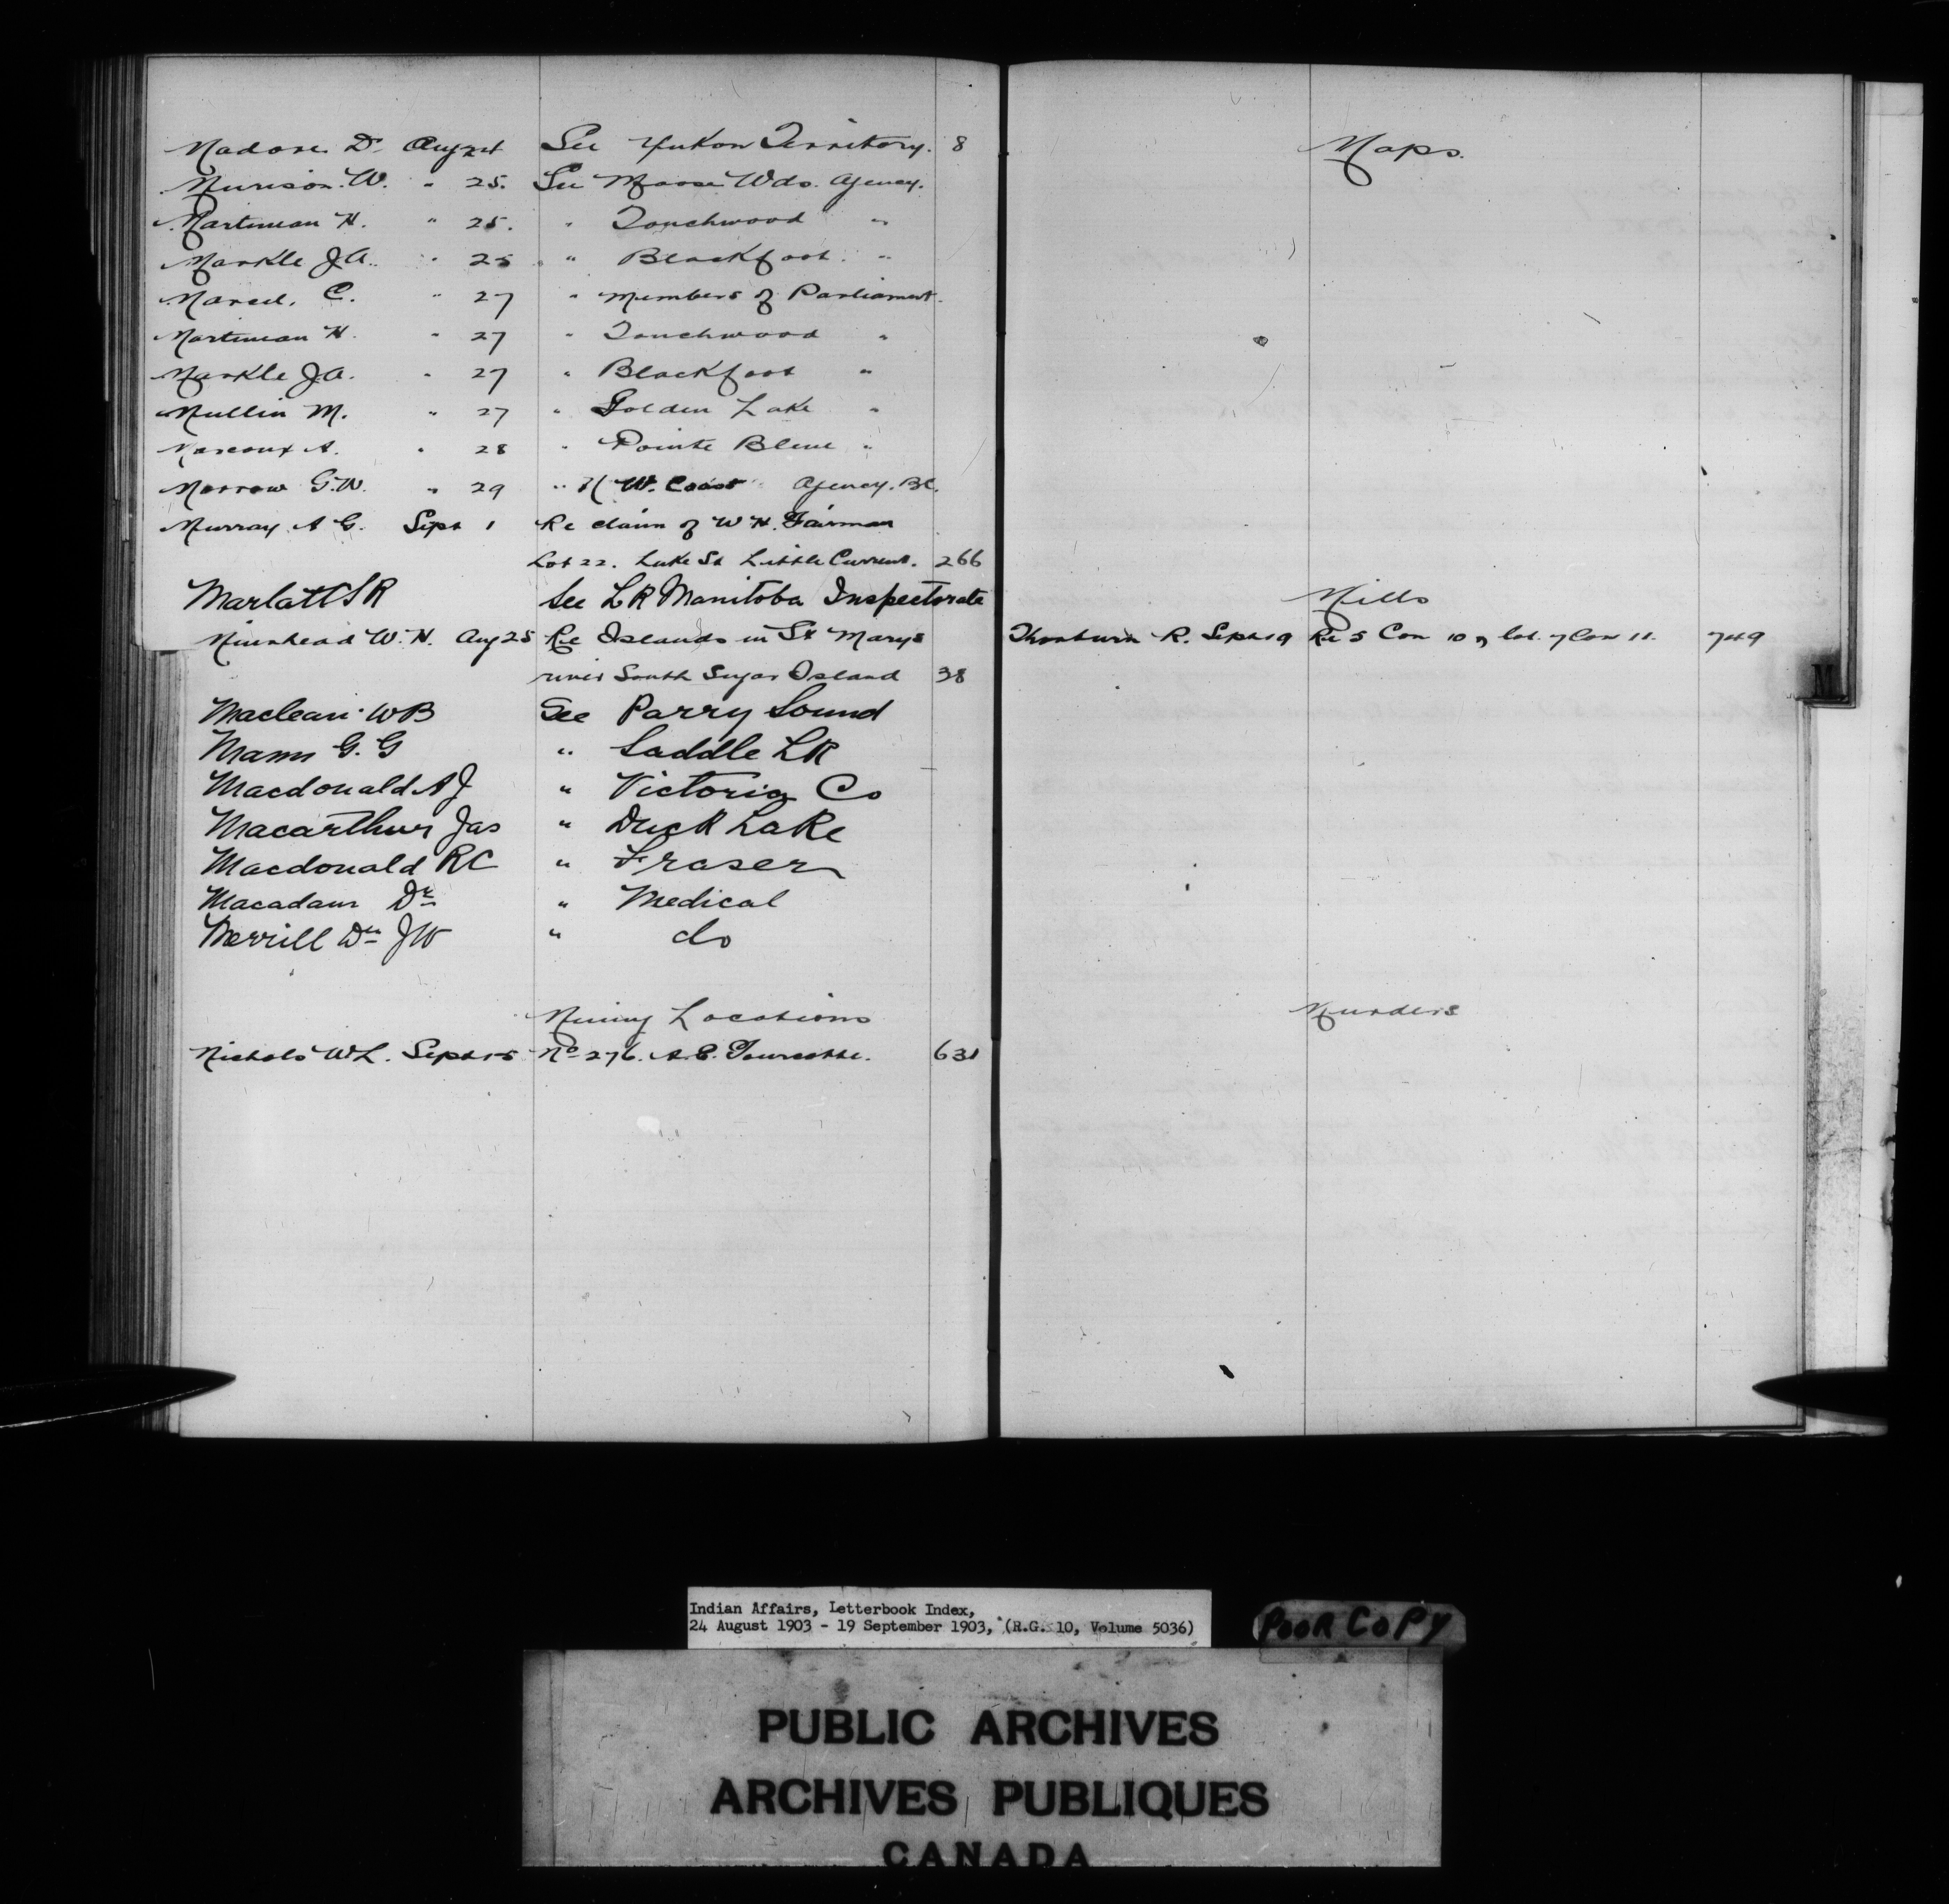 Madore D. Aug 24 See Yukon Territory. 8
Murison W. " 25. See Moose Wds. Agency.
Martineau H. " 25. " Touchwood "
Markle J.A. " 25 " Blackfoot. "
Marcil, C. " 27 " Members of Parliament.
Martineau H. " 27 " Touchwood "
Markle J.A. " 27 " Blackfoot "
Mullin M. " 27 " Golden Lake "
Marcoux A. " 28 " Pointe Bleue "
Morrow G.W. " 29 " N W. Coast Agency. B.C.
Murray A G. Sept 1 Re claim of W H. Fairman
Lot 22. Luke St Little Current. 266
Marlatt S R See L R Manitoba Inspectorate
Muirhead W. H. Aug 25 Re Islands in St Marys
river South Sugar Island 38
Maclean W B See Parry Sound
Mann G. G " Saddle L R
Macdonald A J " Victoria Co
Macarthur Jas " Duck Lake
Macdonald R C " Fraser
Macadam Dr " Medical
Merrill Dr J W " do
Mining Locations
Nichols W L. Sept 15 No 276. A. E. Tourcotte. 631
Maps.
Mills
Thorburn R. Sept 19 Re 5 Con 10 & lot 7 Con 11. 749
Murders
M
Indian Affairs, Letterbook Index,
24 August 1903 - 19 September 1903, (R.G. 10, Volume 5036)
POOR COPY
PUBLIC ARCHIVES
ARCHIVES PUBLIQUES
CANADA